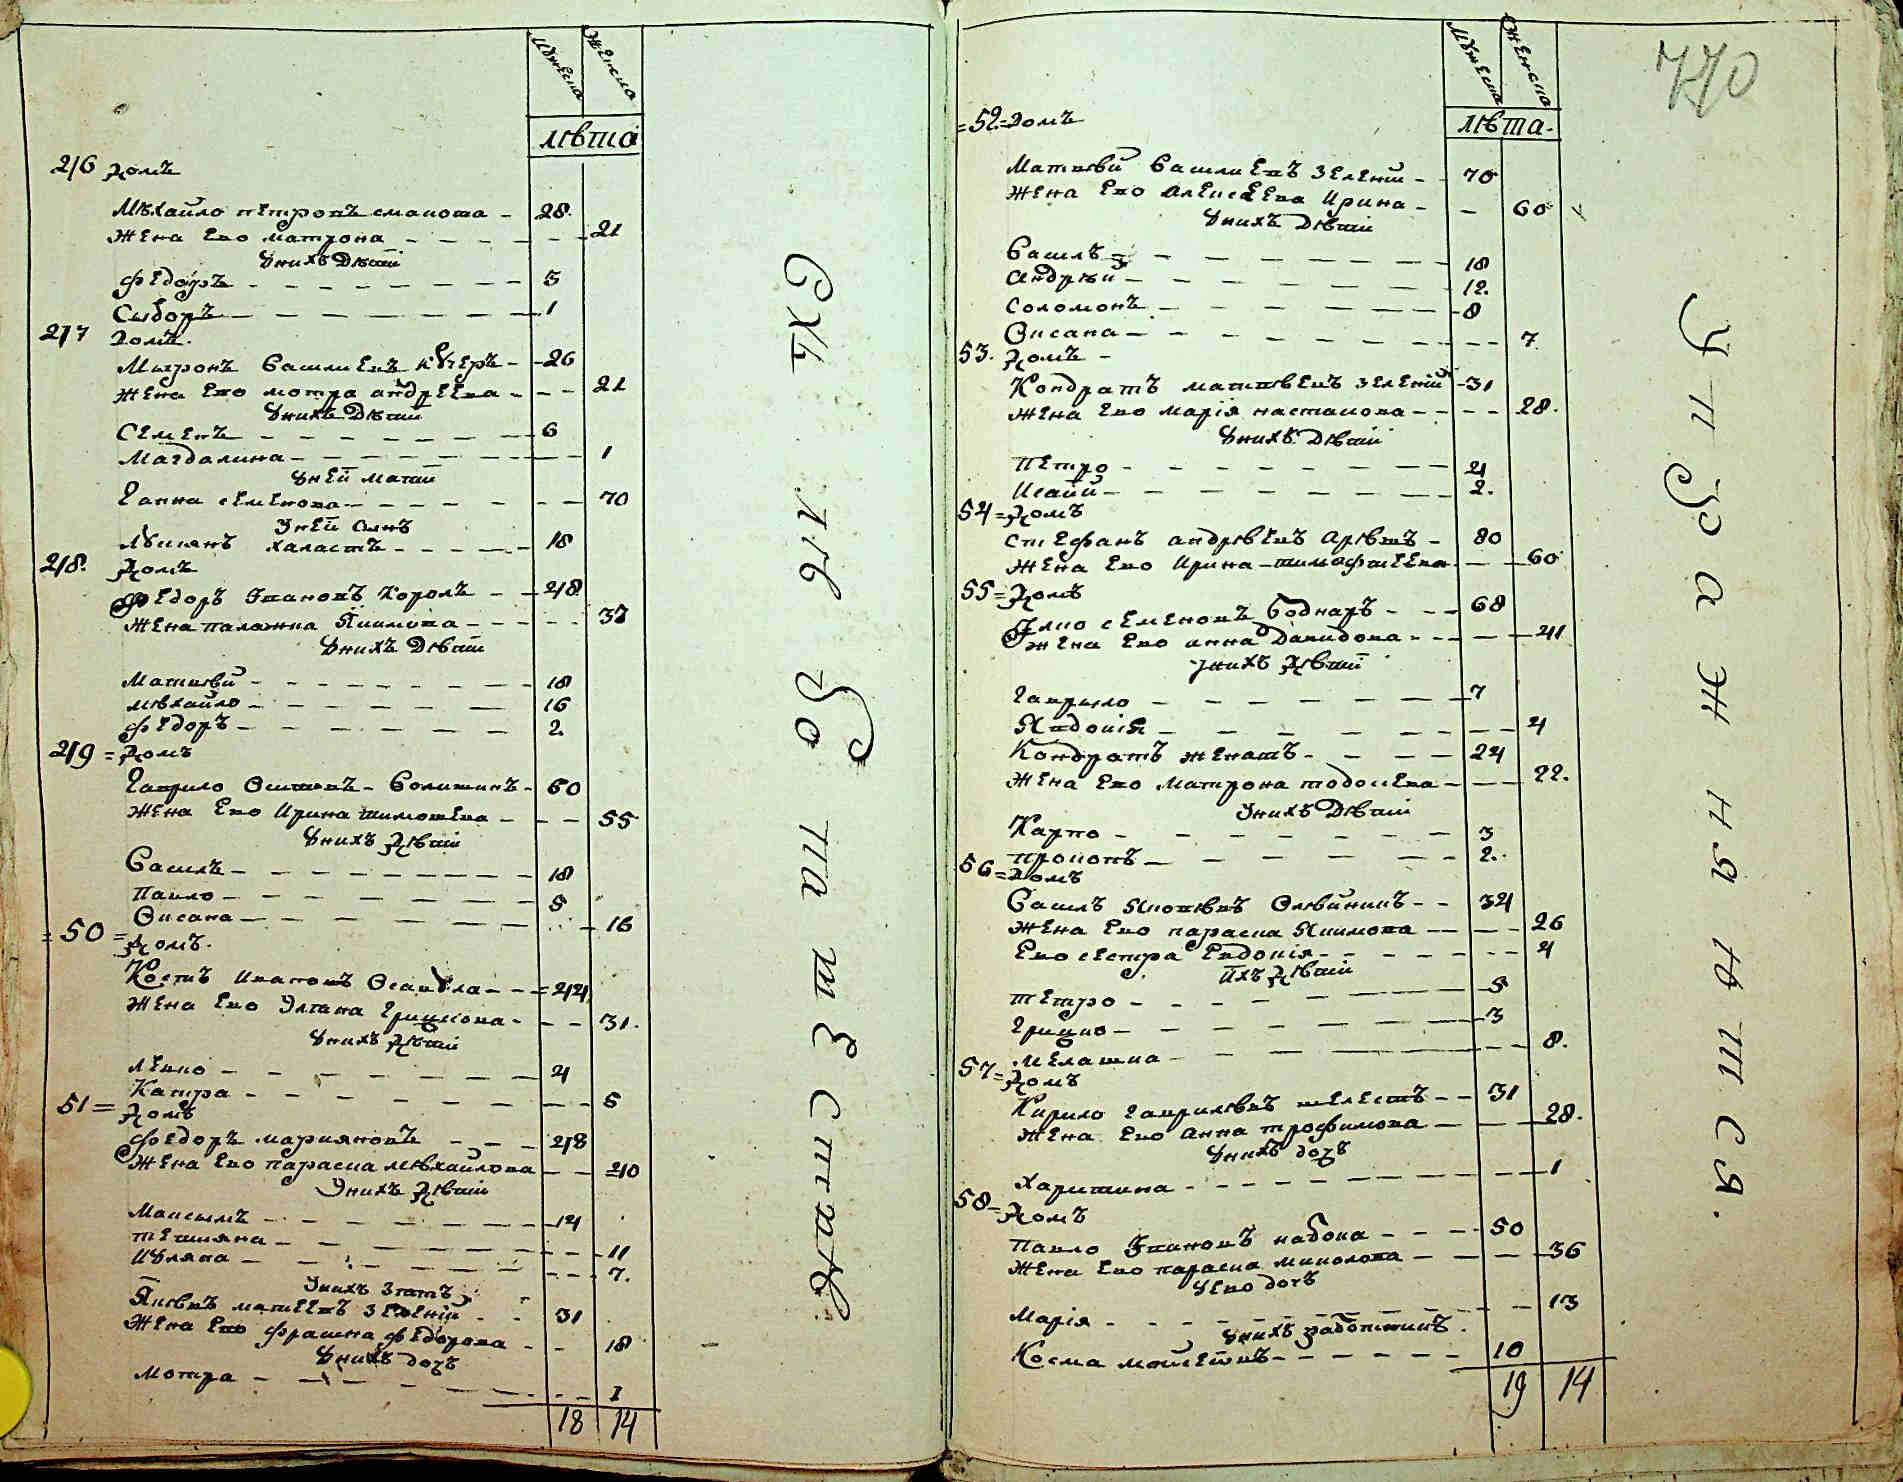 мужеска женска
лѣта
46 домъ
Мѣхайло петровъ
28
жена ево матрона
21
у нихъ дѣти
федоръ 5
Сыдоръ 1
47 домъ
Мыронъ Василиевъ кучеръ 26
жена ево мотра андреева 21
у нихъ дѣти
Семенъ 6
Магдалина 1
у ней мати
Ганна семенова 70
у ней сынъ
18
48 домъ
федоръ Ивановъ Король 48
жена Екимова
у нихъ дѣти
Матвѣй 18
мѣхайло 16
федоръ 2
49 = домъ
Гаврило 60
жена ево Ирина 55
у нихъ дѣти
Василъ 18
Павло 5
Оксана 16
= 50 = домъ
Костъ Ивановъ Осаула 44
жена ево Улиана Грицкова 31
у нихъ дѣти
левко 4
Катра 5
51 = домъ
федоръ марияновъ 48
жена ево параска мѣхайлова 40
у нихъ дѣти
Максымъ 14
тетияна 11
Уляна 7
у нихъ зятъ
Яковъ матвеевъ зеленій 31
жена ево федорова 18
у нихъ дочъ
мотра 1
18 14
Скъ ля Яо та ш з
мужеска женска
770
лѣта
= 52 = домъ
Матвѣй Василиевъ зеленій 70
жена ево алексеева Ирина 60
у нихъ дѣти
Василъ 18
андрѣй 12
соломонъ 8
Оксана 7
53 домъ
Кондратъ матвѣевъ зеленій 31
жена ево марія 28
у нихъ дѣти
Петро 4
Исаій 2
54 = домъ
стефанъ андрѣевъ 80
жена ево Ирина тимофеева 60
55 = домъ
семеновъ боднаръ 68
жена ево анна давидова 41
у нихъ дѣти
гаврыло 7
Явдокія 4
Кондратъ женатъ 24
жена ево матрона тодосиева 22
у нихъ дѣти
Карпо 3
прокопъ 2
56 = домъ
Василъ Яковѣвъ Олѣйникъ 34
жена ево параска Якимова 26
ево сестра Евдокія 4
ихъ дѣти
петро 5
грицко 3
мелашка 8
57 = домъ
Кирило гаврилѣвъ шелестъ 31
жена ево анна трофимова 28
у нихъ дочъ
харитина 1
58 = домъ
Павло Ивановъ набока 50
жена ево параска миколова 36
у ево дочъ
Марія 13
у нихъ работникъ
Косма 10
19 14
упражняются.